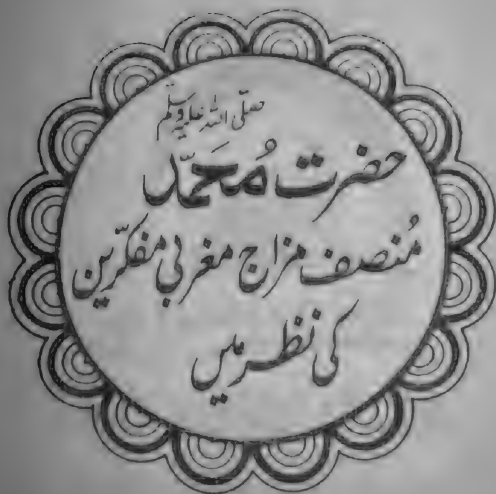 صلّی اللہ علیہ وسلّم
حضرت مُحَمّد
مُنصف مزاج مغربی مفکّرین
کی نظر میں